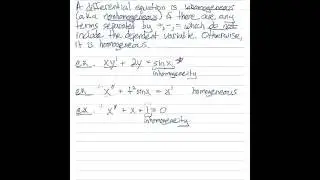 A differential equation is inhomogeneous
(a.k.a. nonhomogeneous) if there are any
terms separated by +, -, = which do not
include the dependent variable. Otherwise,
it is homogeneous.
e.x. xy' + 2y = sin x
inhomogeneity
e.x. x'' + t² sin x = x' homogeneous
e.x. x'' + x + 1 = 0
inhomogeneity